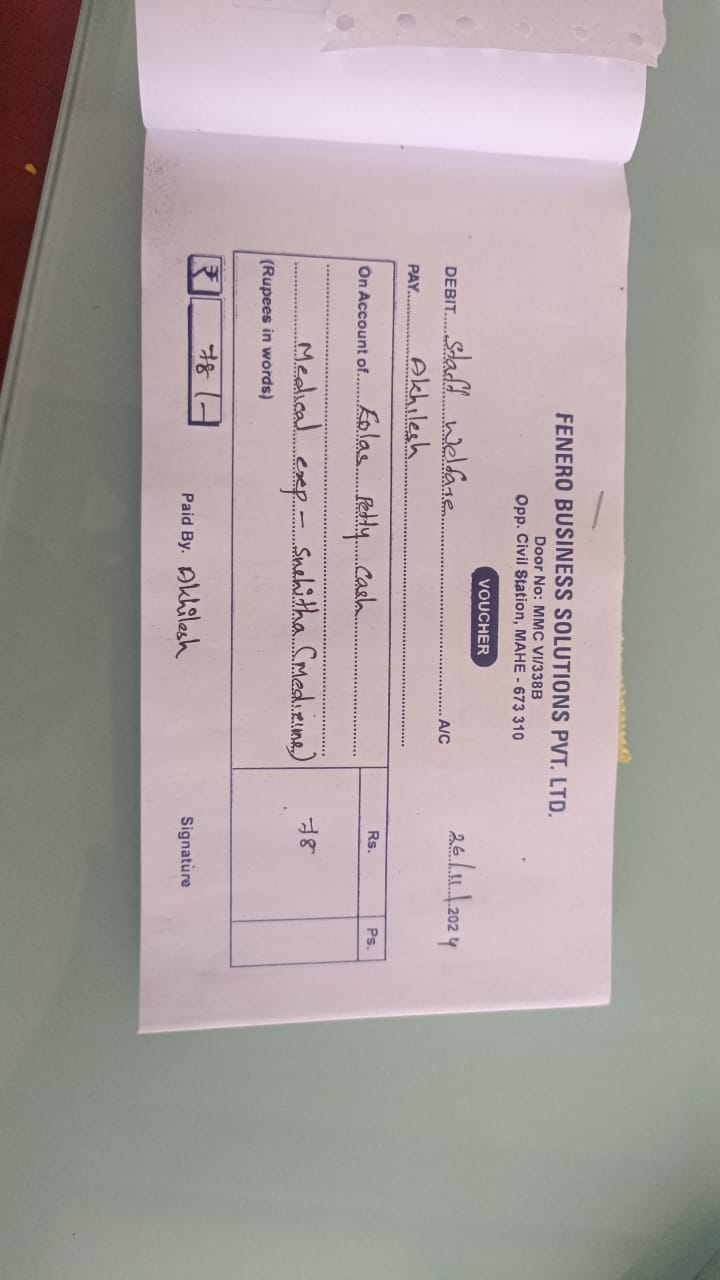 FENERO BUSINESS SOLUTIONS PVT. LTD.
Door No: MMC VI/338B
Opp. Civil Station, MAHE - 673 310
VOUCHER
DEBIT Staff Welfare A/C 26/11/2024
PAY Akhilesh
On Account of Eolas Petty cash Rs. Ps.
Medical exp - Snehitha (Medizine) 78
(Rupees in words)
₹ 78/- Paid By. Akhilesh Signature